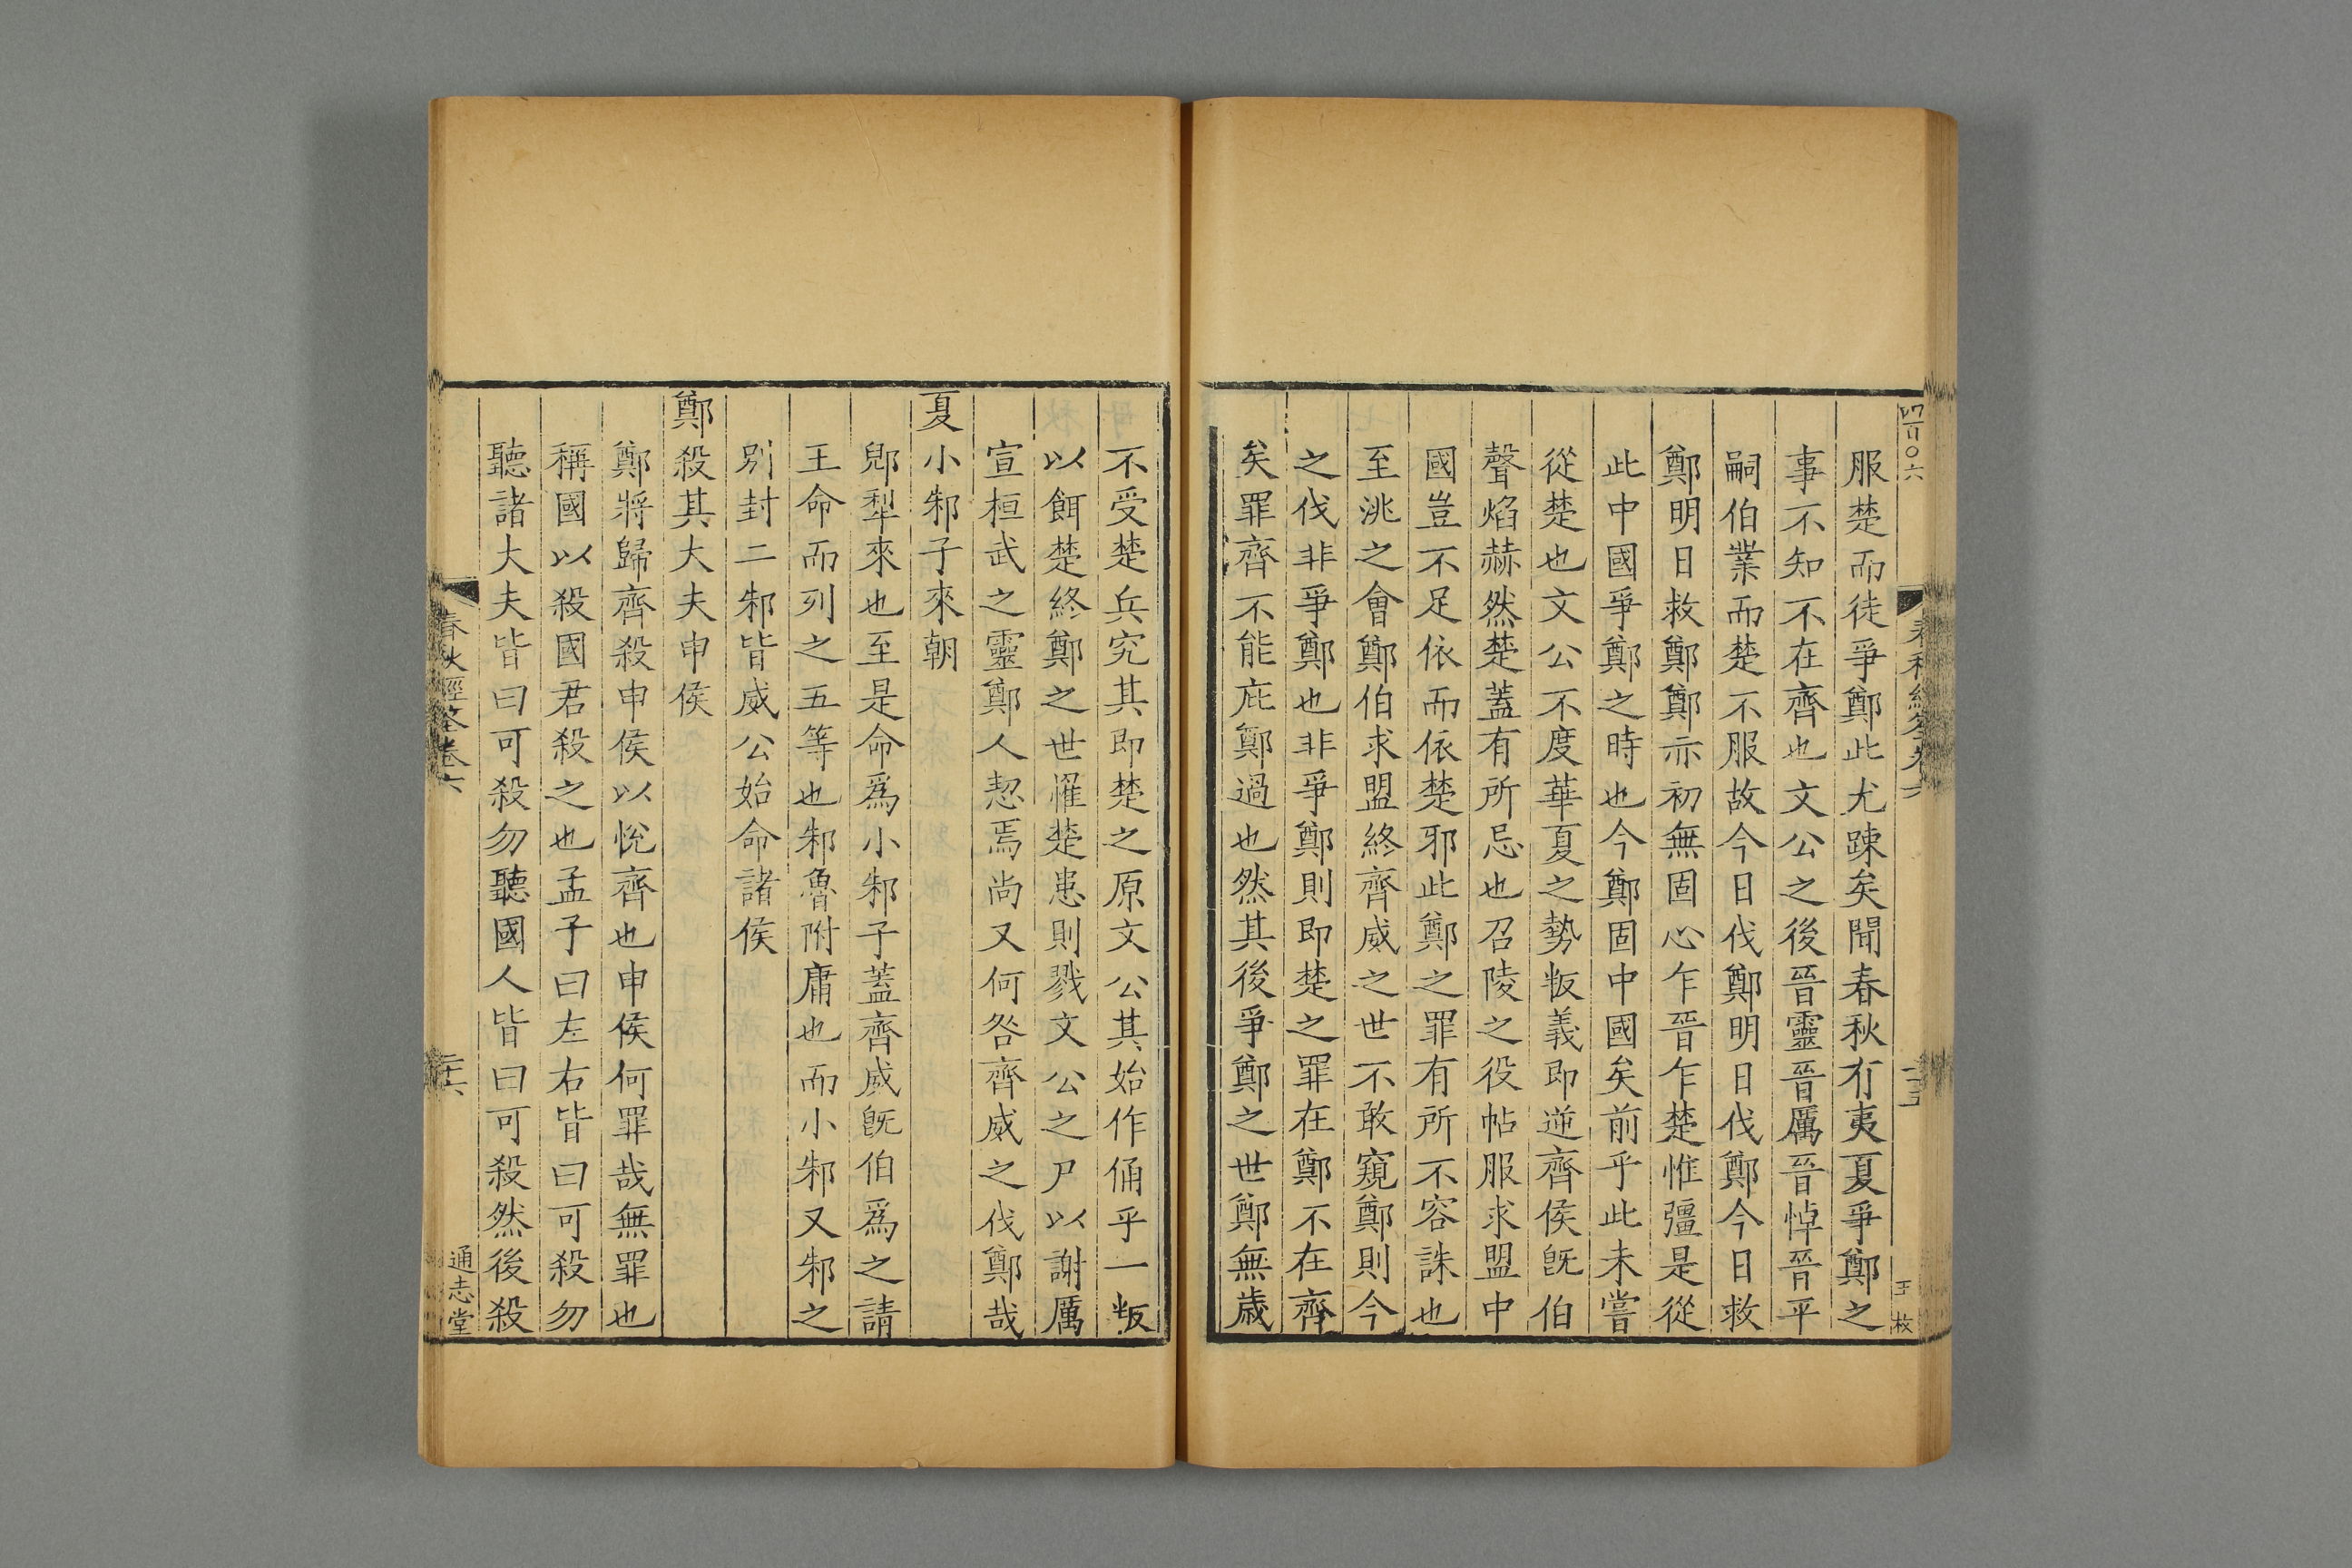 四百〇六
春秋經筌卷六
二十五
王枚
服楚而徒爭鄭此尤踈矣聞春秋有夷夏爭鄭之
事不知不在齊也文公之後晉靈晉厲晉悼晉平
嗣伯業而楚不服故今日伐鄭明日伐鄭今日救
鄭明日救鄭鄭亦初無固心乍晉乍楚惟彊是從
此中國爭鄭之時也今鄭固中國矣前乎此未嘗
從楚也文公不度華夏之勢叛義即逆齊侯旣伯
聲焰赫然楚蓋有所忌也召陵之役帖服求盟中
國豈不足依而依楚邪此鄭之罪有所不容誅也
至洮之會鄭伯求盟終齊威之世不敢窺鄭則今
之伐非爭鄭也非爭鄭則即楚之罪在鄭不在齊
矣罪齊不能庇鄭過也然其後爭鄭之世鄭無歲
不受楚兵究其即楚之原文公其始作俑乎一叛
以餌楚終鄭之世罹楚患則戮文公之尸以謝厲
宣桓武之靈鄭人恝焉尚又何咎齊威之伐鄭哉
夏小邾子來朝
郳犁來也至是命爲小邾子蓋齊威旣伯爲之請
王命而列之五等也邾魯附庸也而小邾又邾之
別封二邾皆威公始命諸侯
鄭殺其大夫申侯
鄭將歸齊殺申侯以悅齊也申侯何罪哉無罪也
稱國以殺國君殺之也孟子曰左右皆曰可殺勿
聽諸大夫皆曰可殺勿聽國人皆曰可殺然後殺
春秋經筌卷六
二十六
通志堂